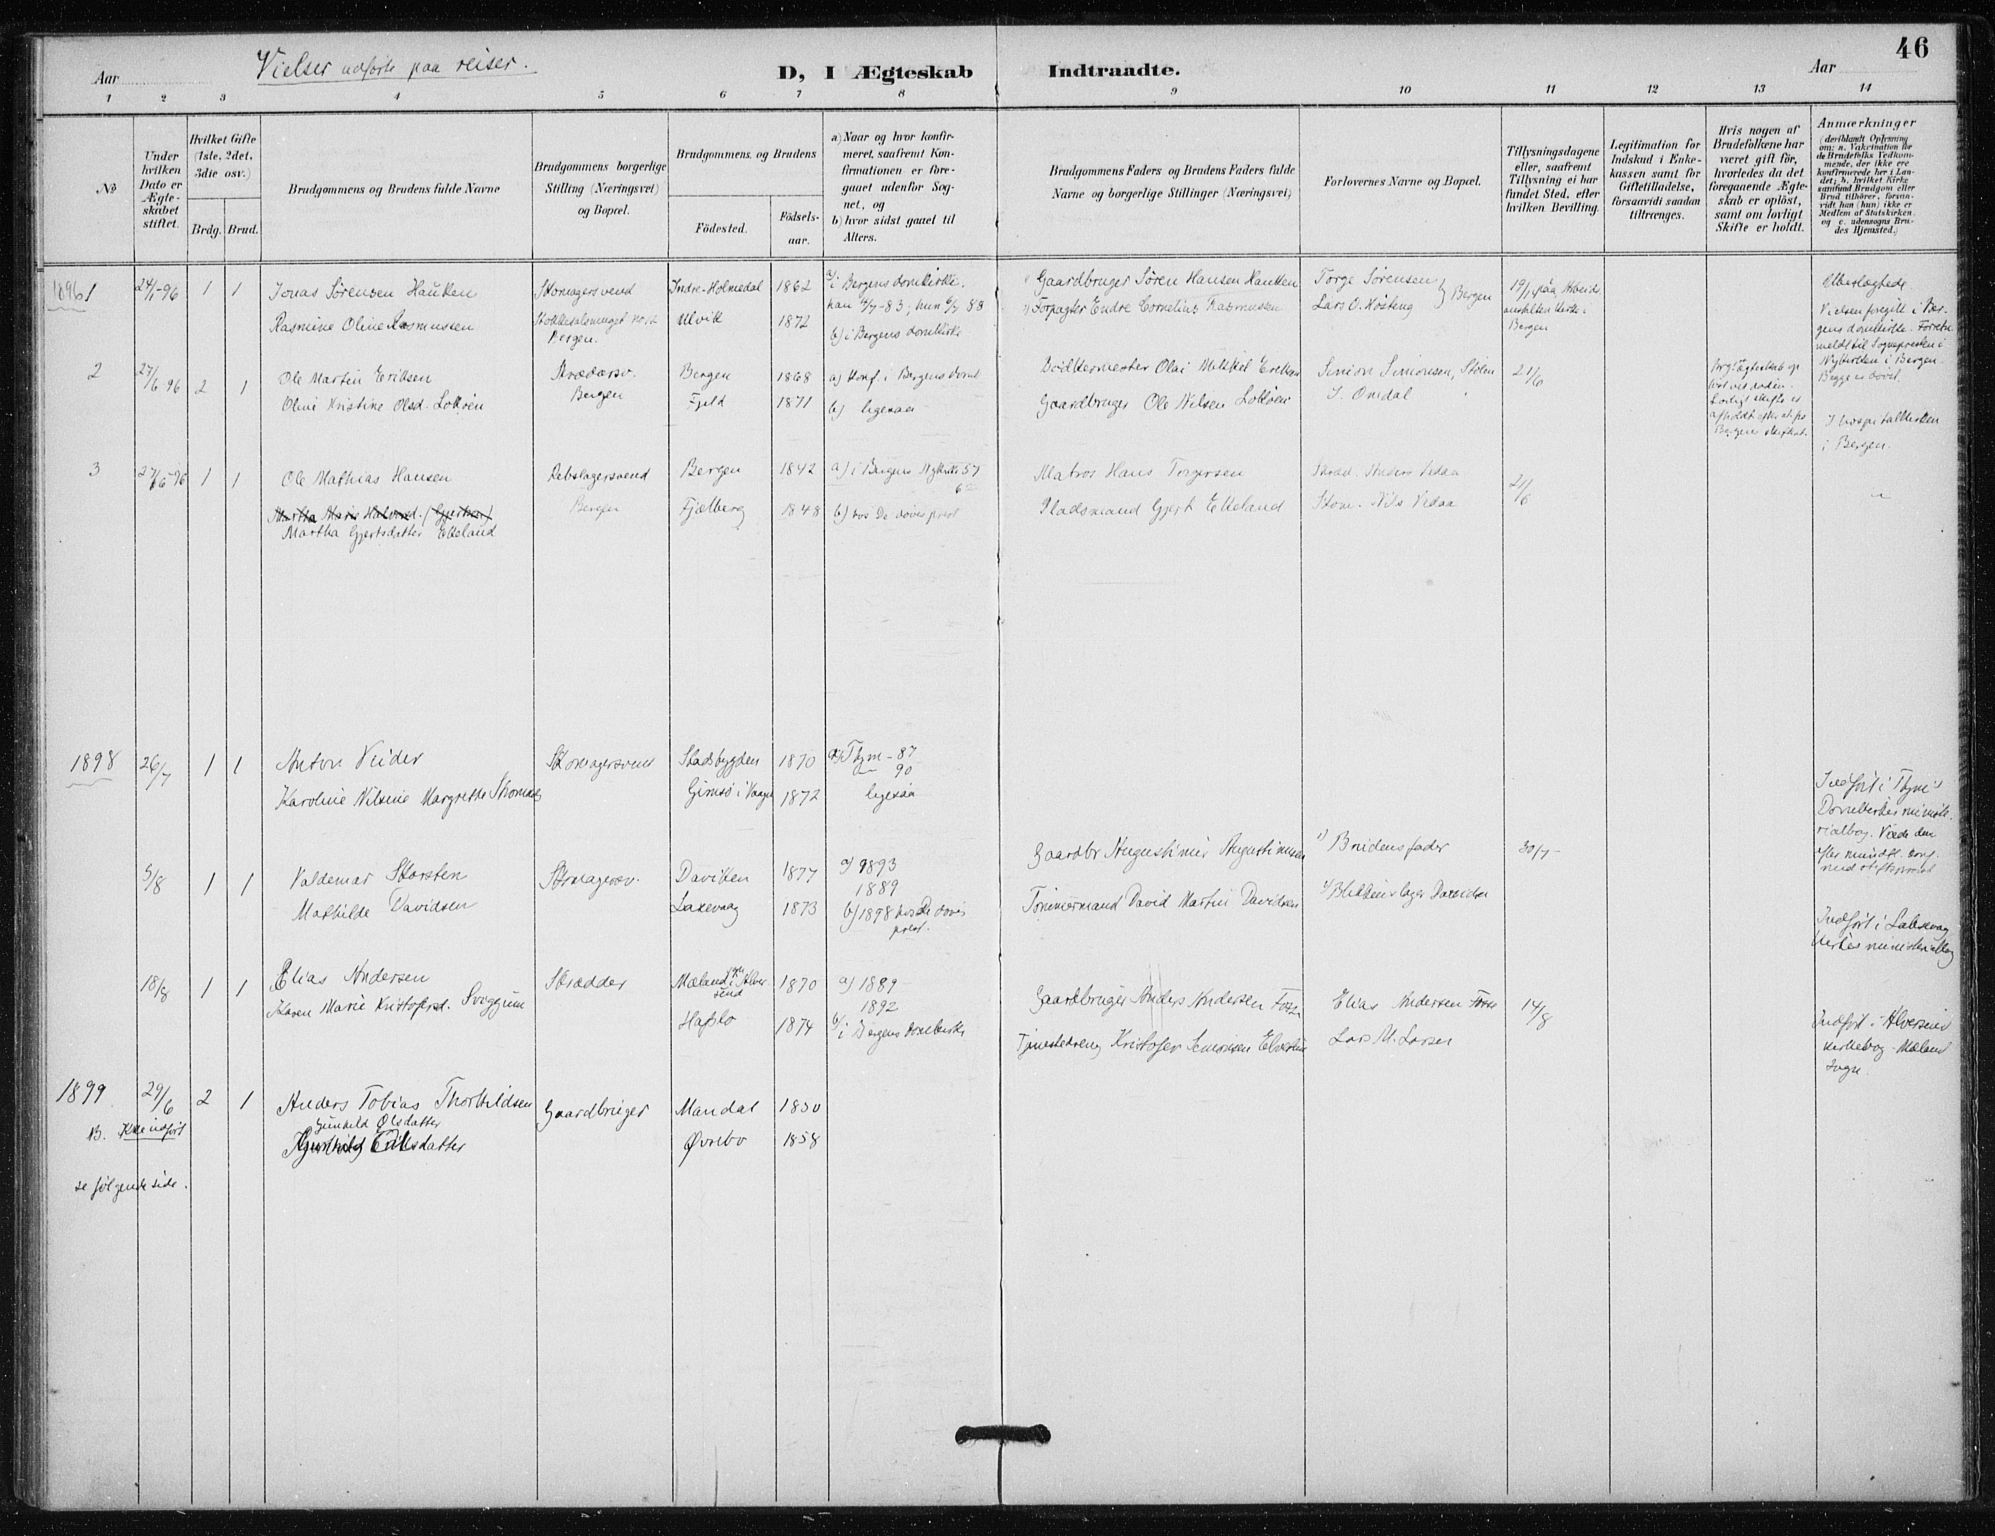 46
Aar
Vielser udförte paa reiser.
D, I Ægteskab Indtraadte.
Aar
1 2 3 4 5 6 7 8 9 10 11 12 13 14
No
Under hvilken Dato er Ægteskabet stiftet.
Hvilket Gifte (1ste, 2det, 3die osv.)
Brdg. Brud.
Brudgommens og Brudens fulde Navne
Brudgommens borgerlige Stilling (Næringsvei) og Bopæl.
Brudgommens og Brudens
Födested.
Födselsaar.
a) Naar og hvor konfirmeret, saafremt Konfirmationen er foregaaet udenfor Sognet, og
b) hvor sidst gaaet til Alters.
Brudgommens Faders og Brudens Faders fulde Navne og borgerlige Stillinger (Næringsvei)
Forlovernes Navne og Bopæl.
Tillysningsdagene eller, saafremt Tillysning ei har fundet Sted, efter hvilken Bevilling.
Legitimation for Indskud i Enkekassen samt for Giftetilladelse, forsaavidt saadan tiltrænges.
Hvis nogen af Brudefolkene har været gift för, hvorledes da det foregaaende Ægteskab er oplöst, samt om lovligt Skifte er holdt.
Anmærkninger
(deriblandt Oplysning om: a. Vakcination for de Brudefolks Vedkommende, der ikke ere konfirmerede her i Landet; b. hvilket Kirkesamfund Brudgom eller Brud tilhörer, forsaavidt han (hun) ikke er Medlem af Statskirken, og c. udensogns Brudes Hjemsted.)
1896 1 24/1-96 1 1
Jonas Sörensen Hauken
Rasmine Oline Rasmussen
Skomagersvend
Bergen.
Indre-Holmedal 1862
Ulvik 1872
a/ i Bergens domkirke,
b) i Bergens domkirke
Gaardbruger Sören Hansen Hauken
Forpagter Endre Cornelius Rasmussen
Torge Sörensen
Lars O. Hösteng } Bergen
19/1 paa Arbeidsanstalten kirke i Bergen
Vielsen foregik i Bergens domkirke.
meldt til Sognepresten i
Nykirken i Bergen.
Begge er dövst.
2 27/6 96 2 1
Ole Martin Eriksen
Oline Kristine Olsd. Loköen
Skrædersv.
Bergen
Bergen 1868
Fjeld 1871
a) Konf. i Bergens domk
b) ligesaa
Bödkermester Olai Mikkel Eriksen
Gaardbruger Ole Nilsen Loköen
Simon Simonsen, Stölen
S. Omdal
21/6
I hospitalkirken
i Bergen.
3 27/6-96 1 1
Ole Mathias Hansen
Martha Gjertsdatter Etteland
Rebslagersvend
Bergen
Bergen 1842
Fjælberg 1848
a) i Bergens Nykirke 57
b) hos De dövespræst
Matros Hans Torgersen
Pladsmand Gjert Etteland
Skræd. Anders Vedaa
Skom. Nils Vedaa
21/6
1898 26/7 1 1
Anton Veider
Karoline Nilsine Margrethe Thomas
Skomagersvend
Stadsbygden 1870
Gimsö i Vaagen 1872
a) Thjm - 87
90
ligesaa
Indfört i Thjms
Domkirkes ministe-
rialbog.
5/8 1 1
Valdemar Skorsten
Mathilde Davidsen
Skomagersv.
Daviken 1877
Laxevaag 1873
a) 1893
1889
b) 1898 hos De döves
prest.
Gaardbr Augustinus Augustinusen
Tömmermand David Martin Davidsen
1) Brudens fader
2) Blikkenslager Davidsen
30/7 -
Indfört i Laksevag
kirkes ministerialbog
18/8 1 1
Elias Andersen
Karen Marie Kristofersd. Svoggum
Skrædder
Mæland sogn i Alversund 1870
Haflo 1874
a) 1889
1892
b/ i Bergens domkirke
Gaardbruger Anders Andersen Fosse
Tjenestedreng Kristofer
Elias Andersen Fosse
Lars M. Larsen
14/8
Indfört i Alversunds
kirkebog - Mæland
sogn.
1899 29/6 2 1
Anders Tobias Thorkildsen
Gunhild Olsdatter
Gaardbruger
Mandal 1850
Övrebo 1858
B. Kke indfört
se fölgende side.